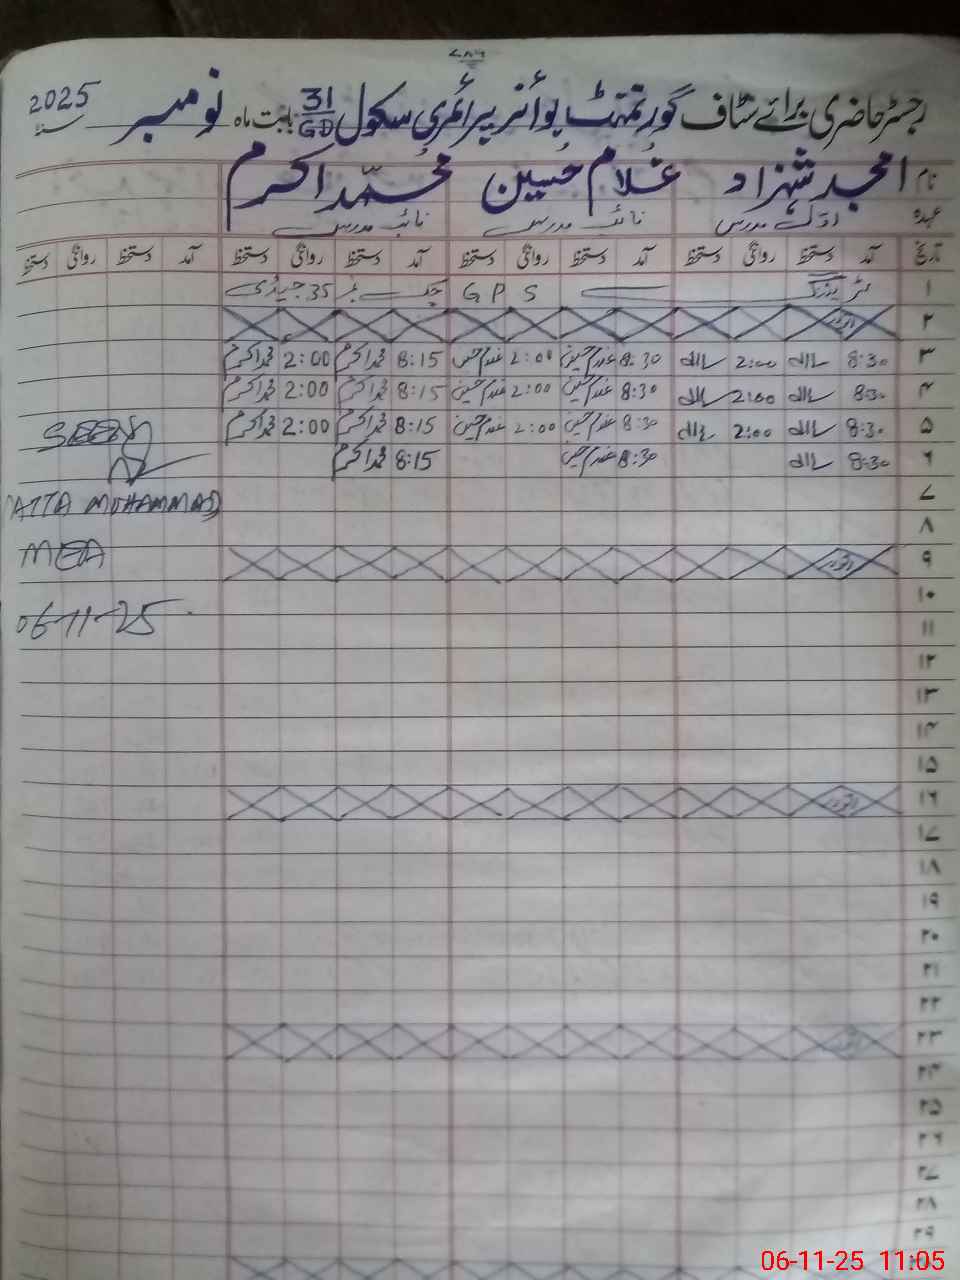 ۷۸۶
رجسٹر حاضری برائے سٹاف گورنمنٹ بوائز پرائمری سکول 31/GD بابت ماہ نومبر سنہ 2025
نام امجد شہزاد غلام حسین محمد اکرم
عہدہ اوّل مدرس نائب مدرس نائب مدرس
تاریخ آمد دستخط روانگی دستخط آمد دستخط روانگی دستخط آمد دستخط روانگی دستخط آمد دستخط روانگی دستخط
۱ GPS چک نمبر 35 جی ڈی
۲ اتوار
۳ 8:30 2:00 8:30 غلام حسین 2:00 غلام حسین 8:15 محمد اکرم 2:00 محمد اکرم
۴ 8:30 2:00 8:30 غلام حسین 2:00 غلام حسین 8:15 محمد اکرم 2:00 محمد اکرم
۵ 8:30 2:00 8:30 غلام حسین 2:00 غلام حسین 8:15 محمد اکرم 2:00 محمد اکرم
۶ 8:30 8:30 غلام حسین 8:15 محمد اکرم
۷
ATTA MUHAMMAD
۸
MEA
۹ اتوار
۱۰
06-11-25
۱۱
۱۲
۱۳
۱۴
۱۵
۱۶ اتوار
۱۷
۱۸
۱۹
۲۰
۲۱
۲۲
۲۳ اتوار
۲۴
۲۵
۲۶
۲۷
۲۸
۲۹
06-11-25 11:05